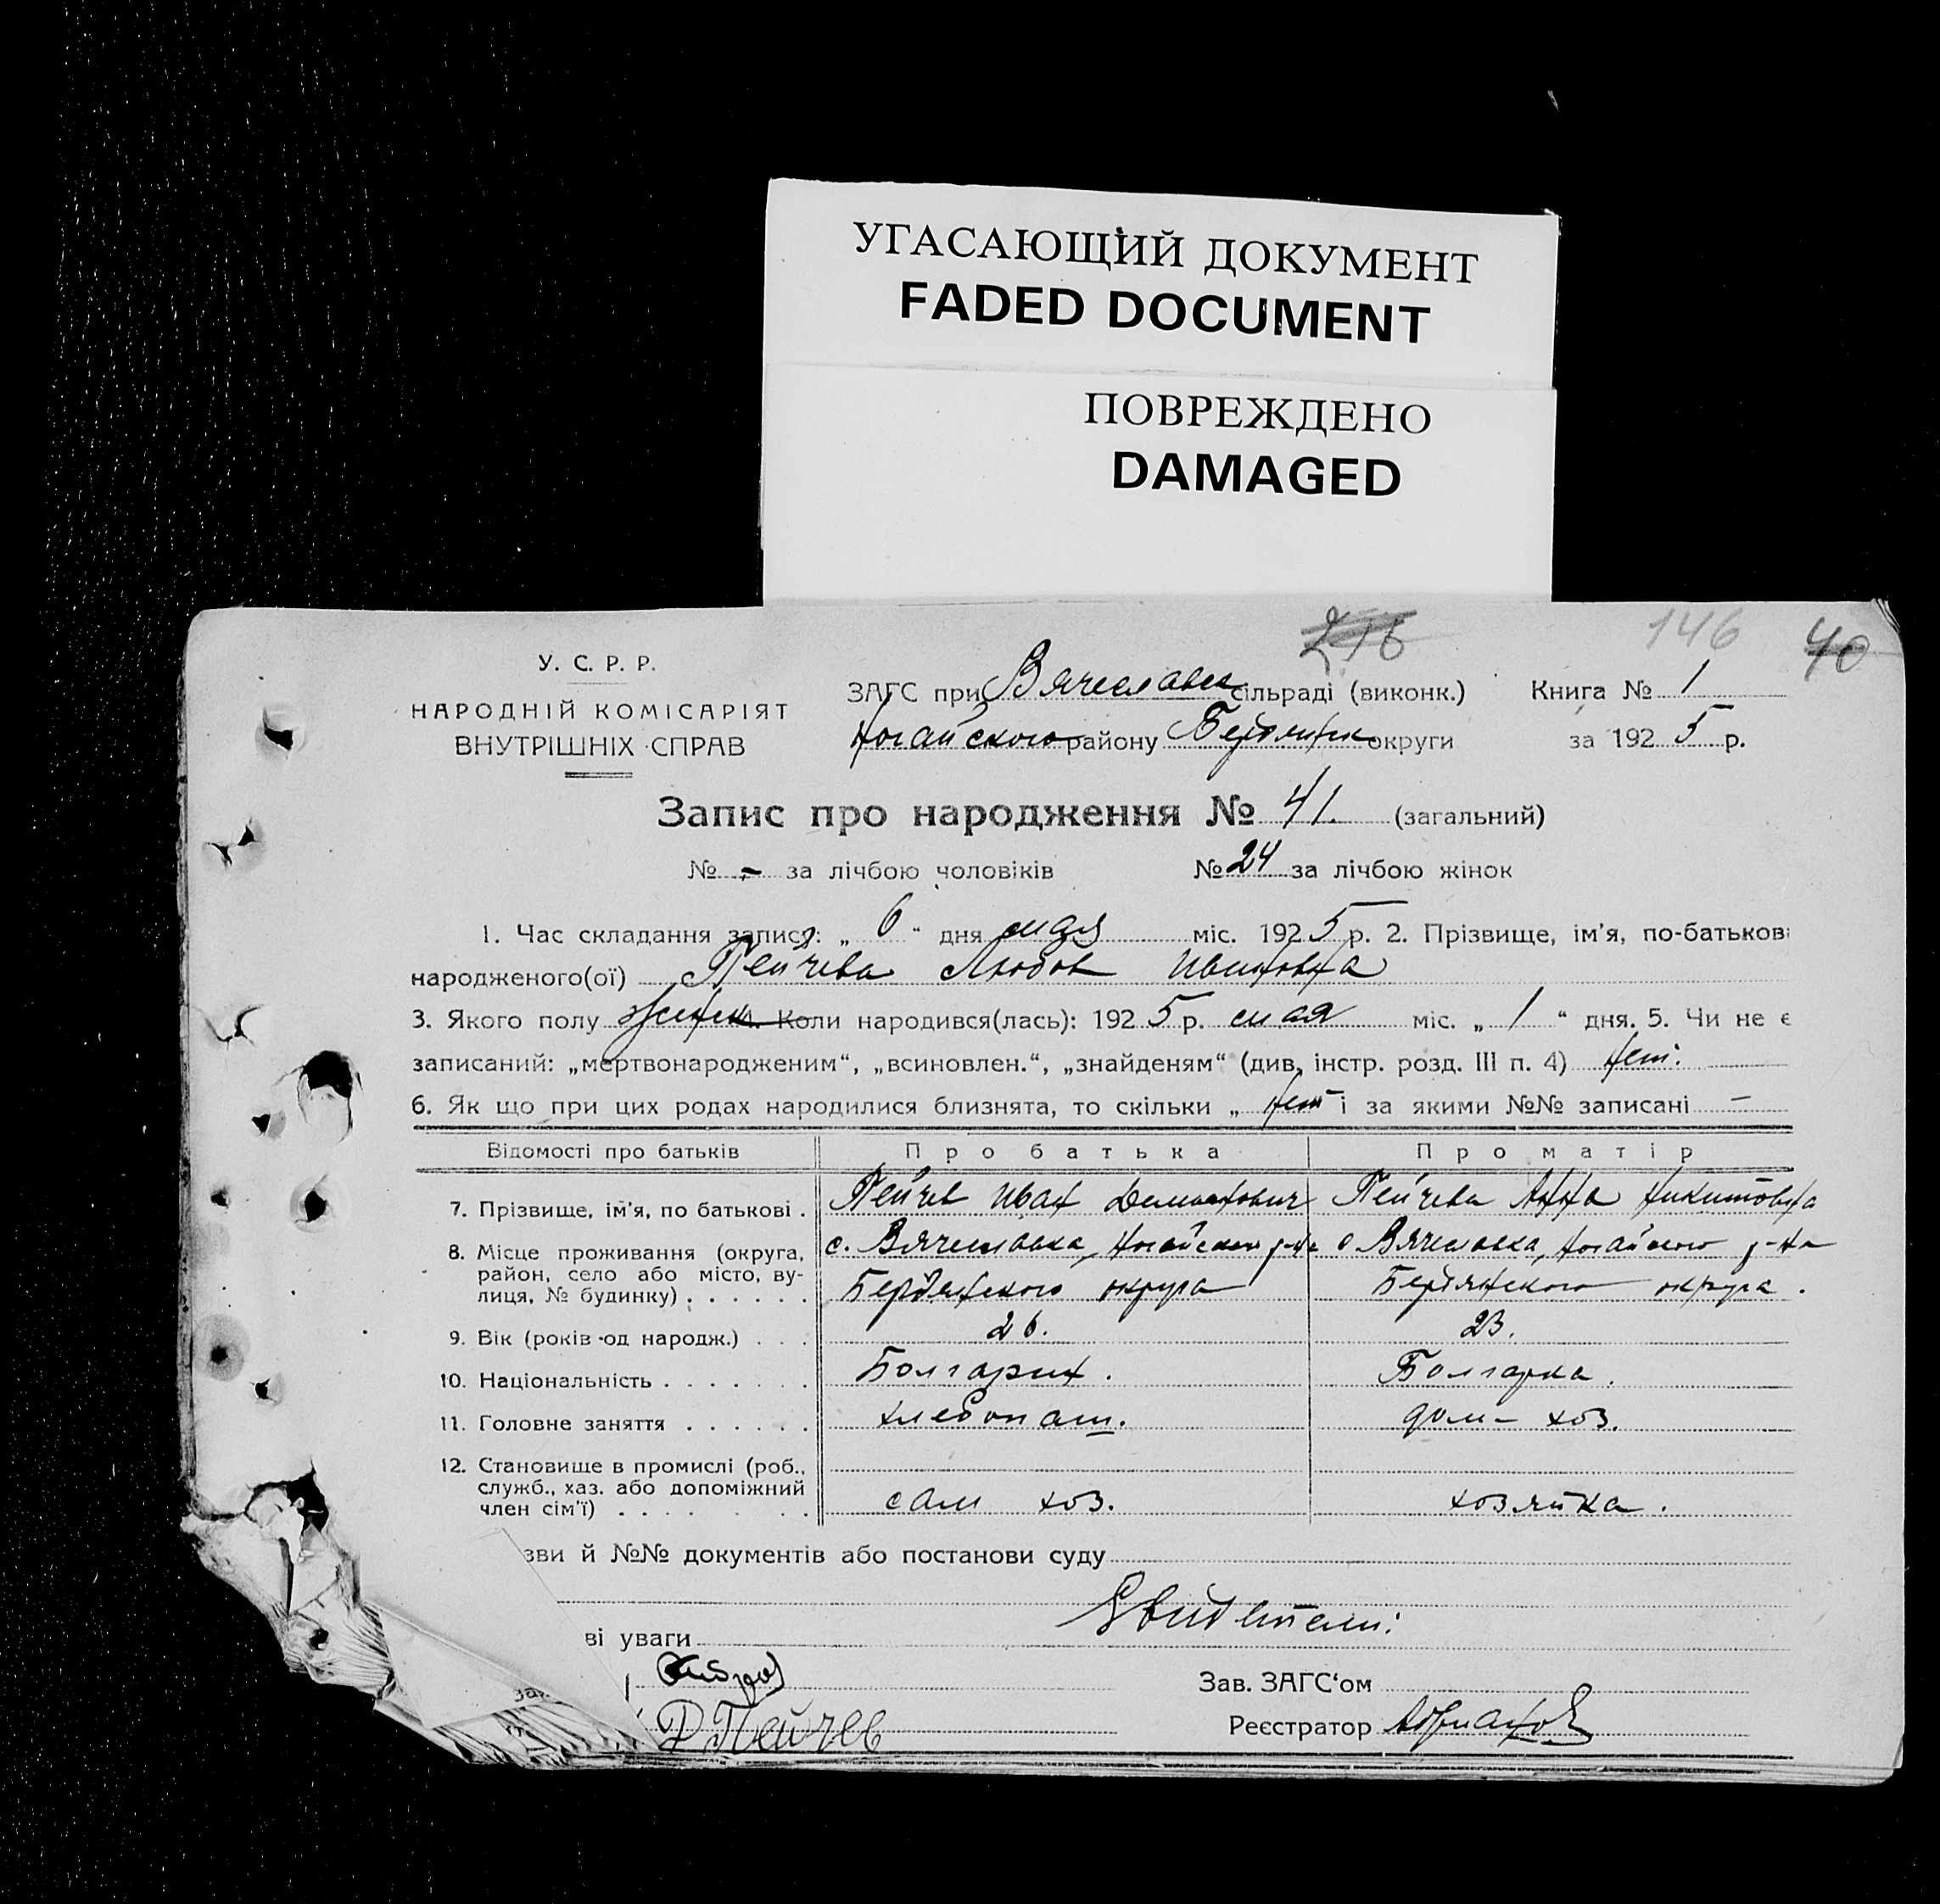 УГАСАЮЩИЙ ДОКУМЕНТ
FADED DOCUMENT
ПОВРЕЖДЕНО
DAMAGED
146 40
У. С. Р. Р.
НАРОДНІЙ КОМІСАРІЯТ
ВНУТРІШНІХ СПРАВ
ЗАГС при Вячеславк сільраді (виконк.) Книга № 1
Ногайского району Бердянск округи за 1925 р.
Запис про народження № 41. (загальний)
№ - за лічбою чоловіків № 24 за лічбою жінок
1. Час складання запису: „ 6 “ дня мая міс. 1925 р. 2. Прізвище, ім'я, по-батькові
народженого(ої) Пейчева Любов Ивановна
3. Якого полу женск. Коли народився(лась): 1925 р. мая міс. „ 1 “ дня. 5. Чи не є
записаний: „мертвонародженим“, „всиновлен.“, „знайденям“ (див. інстр. розд. III п. 4) нет.
6. Як що при цих родах народилися близнята, то скільки „ нет “ і за якими №№ записані —
Відомості про батьків Про батька Про матір
7. Прізвище, ім'я, по батькові . Пейчев Иван Демианович Пейчева Анна Никитовна
8. Місце проживання (округа, район, село або місто, вулиця, № будинку) . . . . . . с. Вячеславка, Ногайского р-на Бердянского округа с Вячеславка, Ногайского р-на Бердянского округа.
9. Вік (років од народж.) . . . 26. 23.
10. Національність . . . . . . . Болгарин. Болгарка.
11. Головне заняття . . . . . . хлебопаш. дом- хоз.
12. Становище в промислі (роб., служб., хаз. або допоміжний член сім'ї) . . . . . . . сам хоз. хозяйка.
зви й №№ документів або постанови суду
Свидетели:
ві уваги
Зав. ЗАГС'ом
Д Пейчев Реєстратор